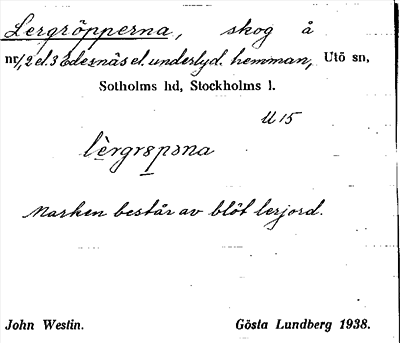 Lergröpperna, skog å
nr 1, 2 el. 3 Edesnäs el. underlyd. hemman, Utö sn,
Sotholms hd, Stockholms l.
U 15
lèrgrɞpəna
Marken består av blöt lerjord.
John Westin. Gösta Lundberg 1938.